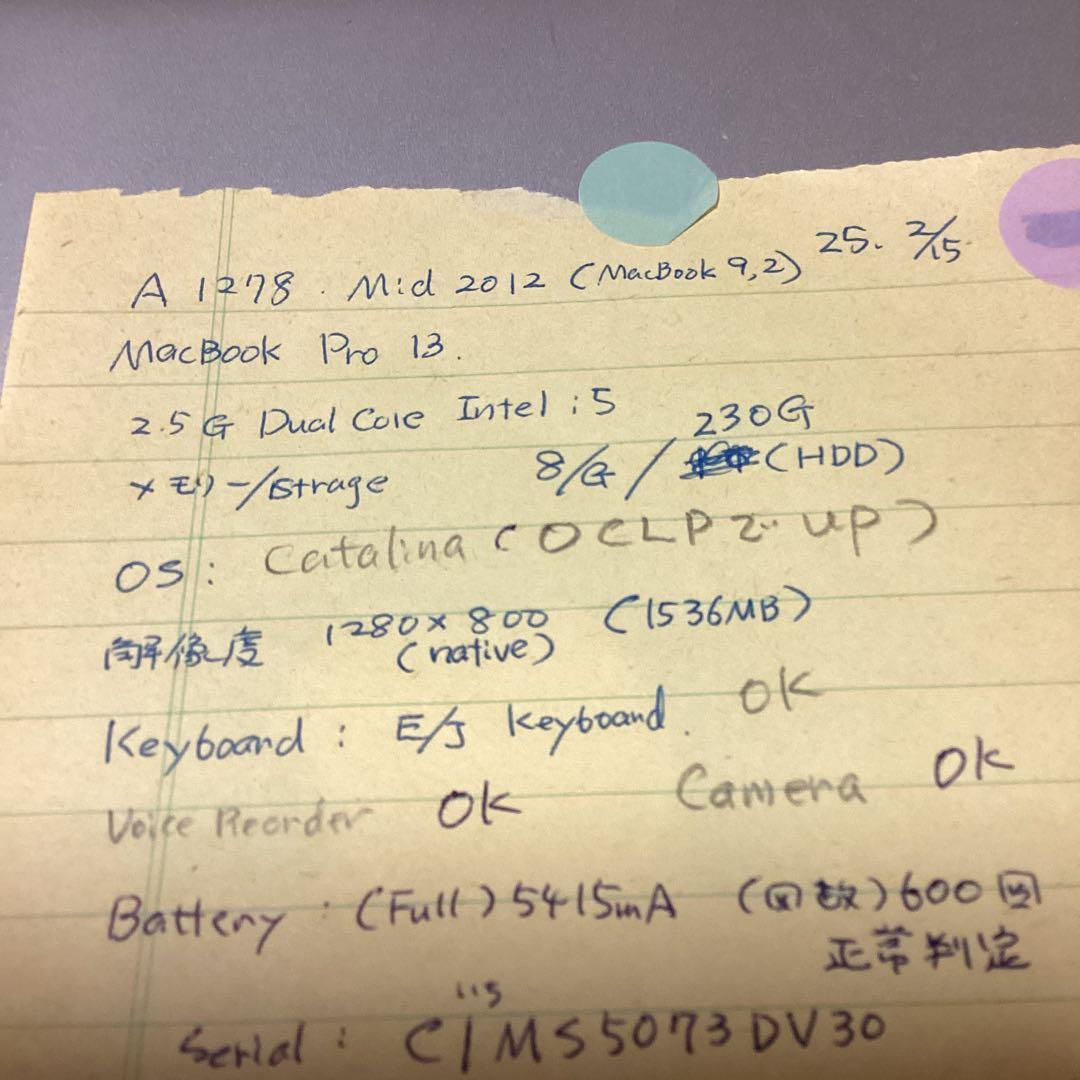 A 1278. Mid 2012 (MacBook 9,2) 25. 2/15.
MacBook Pro 13.
2.5 G Dual Core Intel i5
230G
メモリー/Strage 8/G / (HDD)
OS: Catalina (OCLPで up)
解像度 1280×800 (1536MB)
(native)
Keyboard: E/J Keyboard. OK
Voice Reorder OK Camera OK
Battery: (Full) 5415mA (回数) 600回
正常判定
Serial: C1MS5073DV30